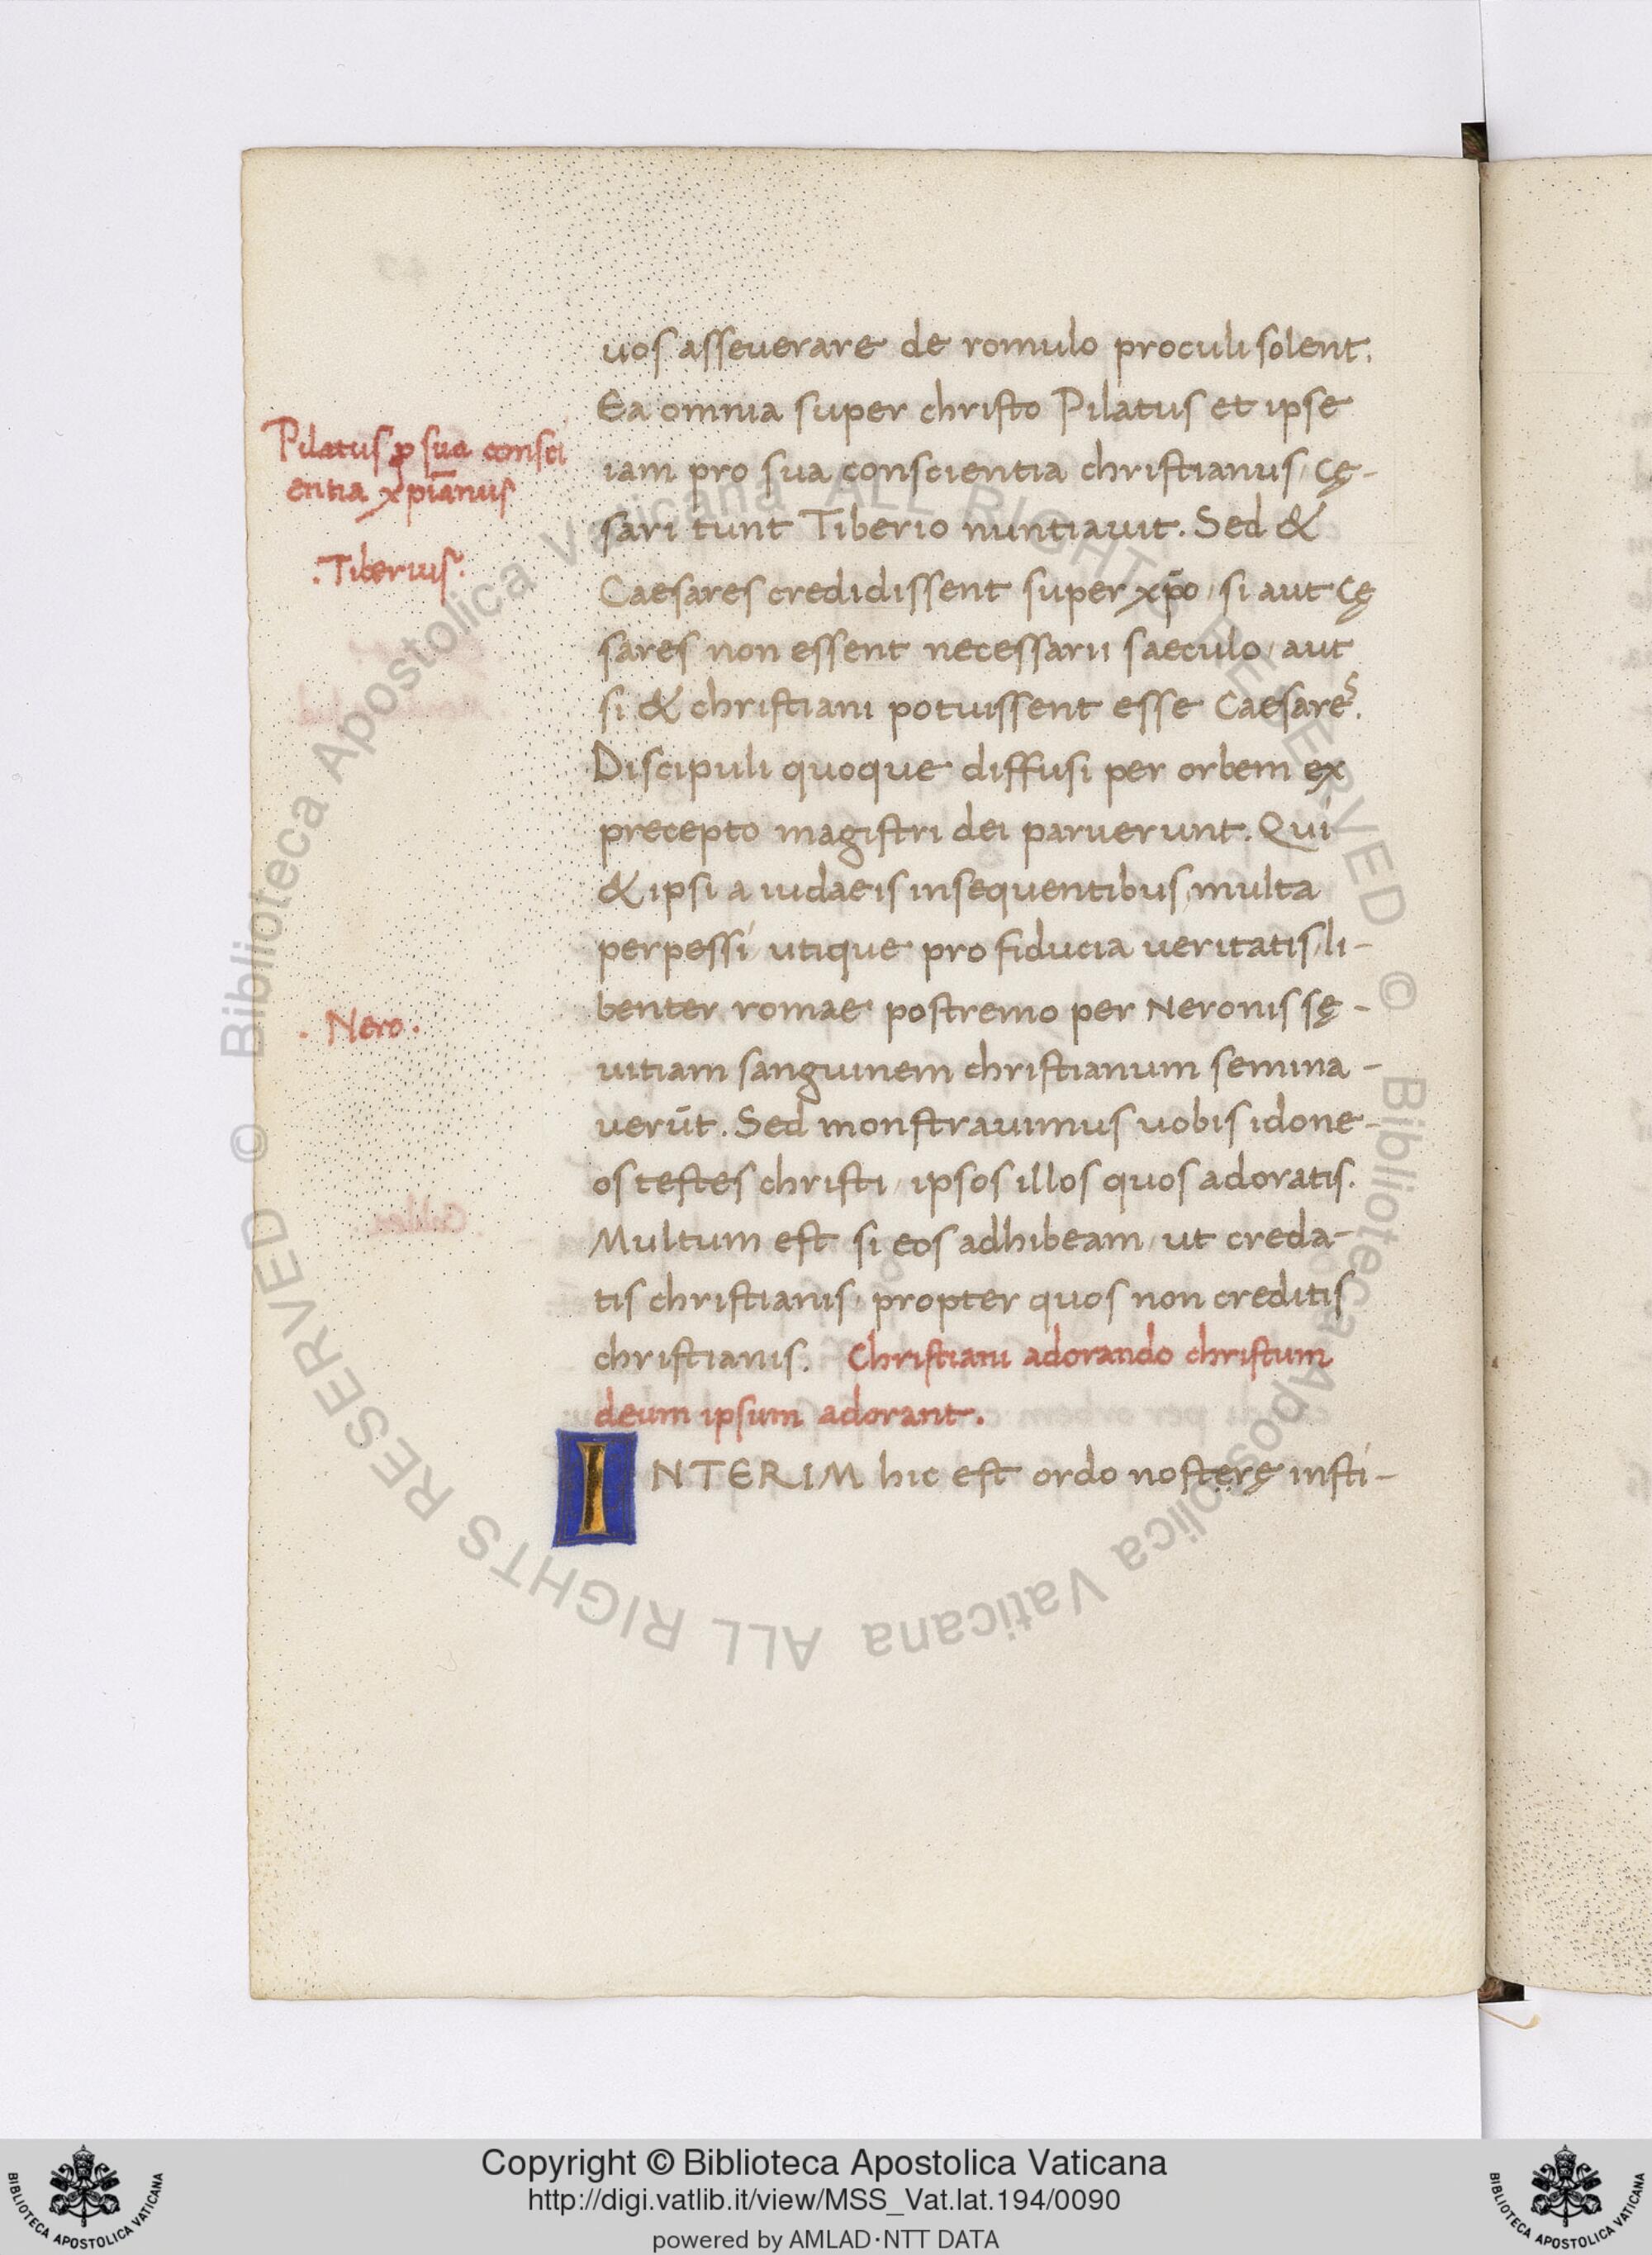 uos asseuerare de romulo proculi solent.
Ea omnia super christo Pilatus et ipse
iam pro sua conscientia christianus, cę-
sari tunt Tiberio nuntiauit. Sed &
Caesares credidissent super xp̄o, si aut Cę
sares non essent necessarii saeculo, aut
si & christiani potuissent esse Caesares.
Discipuli quoque diffusi per orbem ex
precepto magistri dei paruerunt. Qui
& ipsi a iudaeis insequentibus, multa
perpessi, utique pro fiducia ueritatis, li-
benter romae postremo per Neronis sę-
uitiam sanguinem christianum semina-
uerūt. Sed monstrauimus uobis idone-
os testes christi, ipsos illos quos adoratis.
Multum est si eos adhibeam, ut creda-
tis christianis, propter quos non creditis
christianis. Christiani adorando christum
deum ipsum adorant.
INTERIM hic est ordo nosterę insti-
Pilatus ꝓ sua consci
entia xpīanus
.Tiberius.
. Nero .
© Biblioteca Apostolica Vaticana ALL RIGHTS RESERVED © Biblioteca Apostolica Vaticana ALL RIGHTS RESERVED
Copyright © Biblioteca Apostolica Vaticana
http://digi.vatlib.it/view/MSS_Vat.lat.194/0090
powered by AMLAD·NTT DATA
BIBLIOTECA APOSTOLICA VATICANA
BIBLIOTECA APOSTOLICA VATICANA